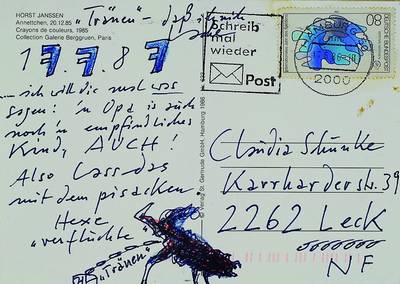 HORST JANSSEN
Annettchen, 20.12.85
Crayons de couleurs, 1985
Collection Galerie Berggruen, Paris
"Tränen" - daß ich nicht
17.7.87
... ich will dir mal was
sagen: 'n Opa is auch
noch 'n empfindliches
Kind, AUCH!
Also Lass das
mit dem pisacken.
Hexe
"verfluchte"
"Tränen"
© Verlag St. Gertrude GmbH, Hamburg 1986
Schreib
mal
wieder
Post
HAMBURG
2000
80
DEUTSCHE BUNDESPOST
Claudia
Karrharderstr. 39
2262 Leck
NF